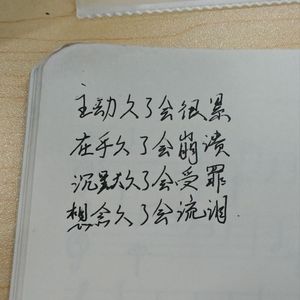 主动久了会很累
在乎久了会崩溃
沉默久了会受罪
想念久了会流泪.